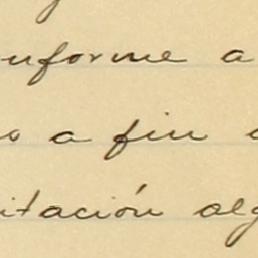 nforme a
s a fin
itación alg